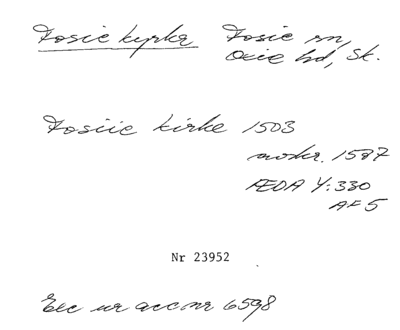 Fosie kyrka Fosie sn,
Oxie hd, Sk.
Fosiie kirke 1503
avskr. 1587
ÆDA Y:330
AF5
Nr 23952
Exc ur acc.nr 6598